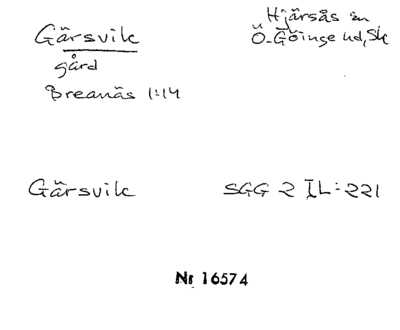 Gärsvik
Hjärsås sn
Ö. Göinge hd, Sk
gård
Breanäs 1:14
Gärsvik
SGG 2 IL:221
Nr 16574